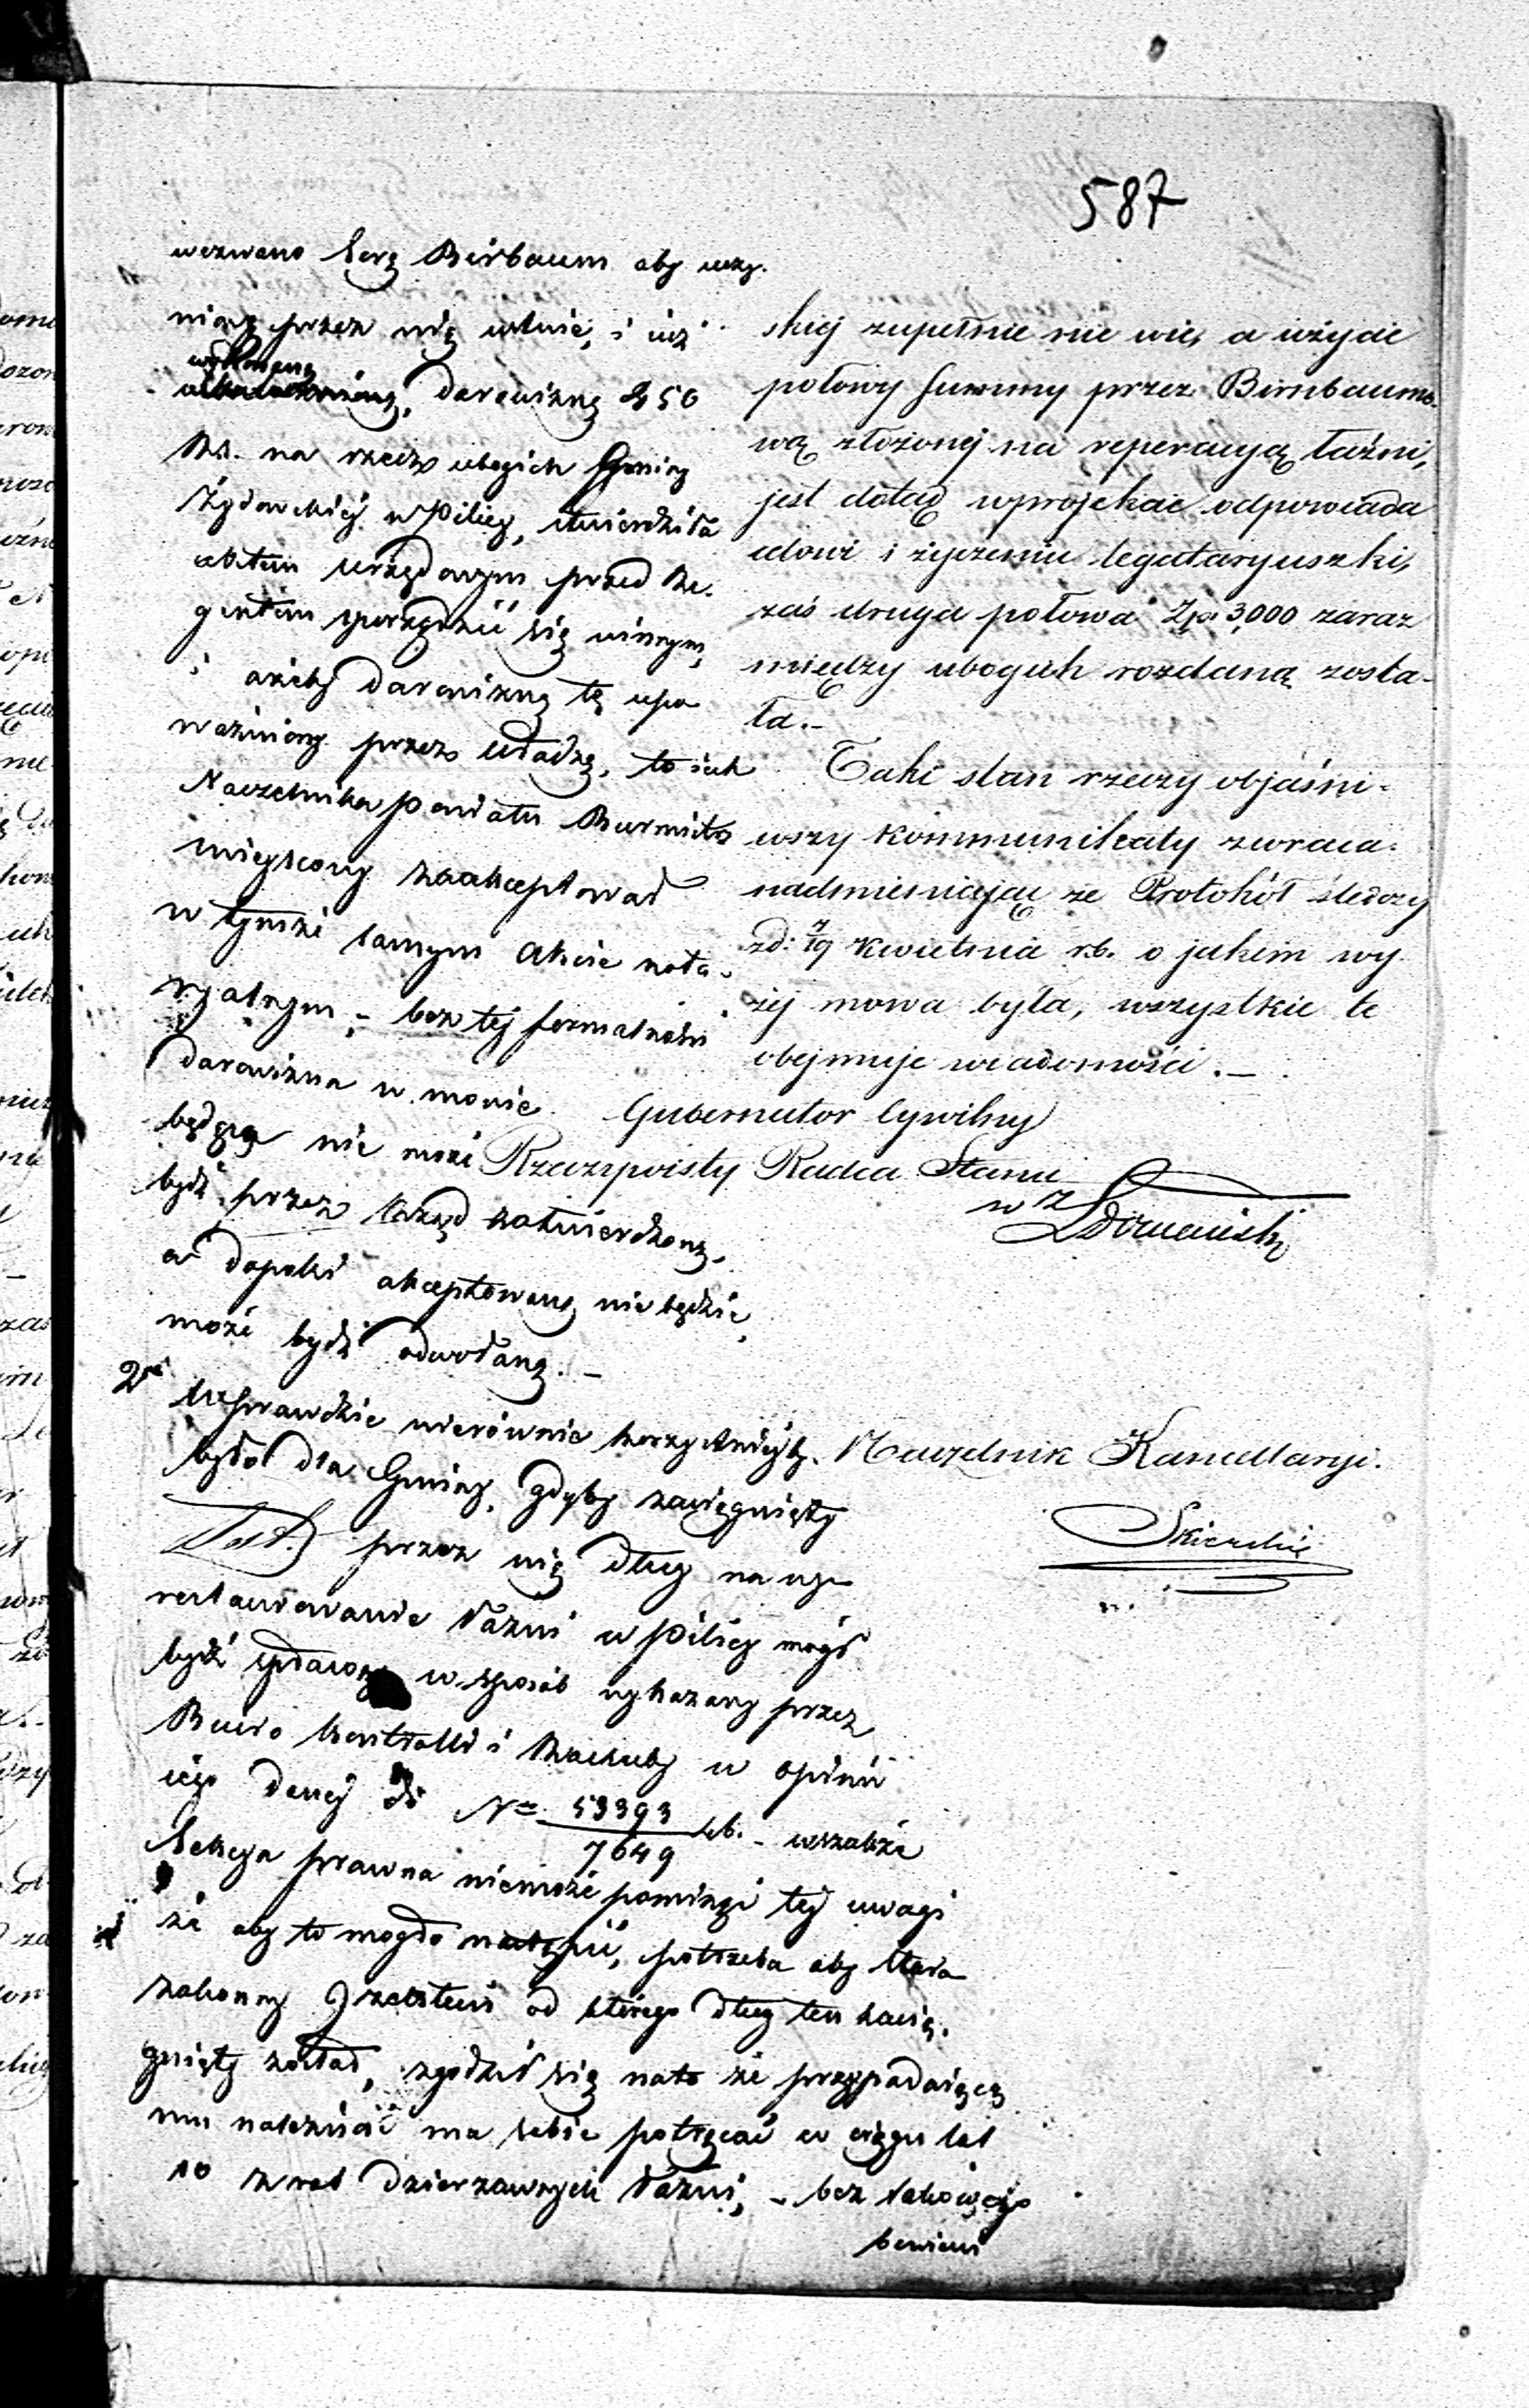 587
wezwano Serę Birbaum aby uczy-
nioną przez nię ustnie, i już
wykonaną darowiznę 450
Rs. na rzecz ubogich Gminy
Żydowskiéj w Pilicy, stwierdziła
aktem urzędowym przed Re-
gentem sporządzić się winnym,
i ażeby darowiznę tę upo
ważniony przez Władzę, to jest
Naczelnika Powiatu Burmistrz
miejscowy zaakceptował
w tymże samym Akcie nota-
ryalnym, - bez tej formalności
darowizna w mowie
będąca nie może
bydź przez Rząd zatwierdzoną,
a dopóki akceptowaną nie będzie,
może bydź odwołaną. -
2re Wprawdzie nierównie korzystniejby
było dla Gminy, gdyby zaciągnięty
przez nię dług na wy-
restaurowanie łaźni w Pilicy mógł
bydź spłacony w sposób wykazany przez
Biuro Kontrolli i Rachuby w opinii
jego danej do Nro 53393/7649 rb. - wszakże
Sekcya prawna niemoże pominąć tej uwagi
że aby to mogło nastąpić, potrzeba aby Staro
zakonny od którego dług ten zacią-
gnięty został, zgodził się na to że przypadającą
mu należność ma sobie potrącać w ciągu lat
10 z rat dzierżawnych łaźni, - bez takowego
bowiem
skiej zupełnie nie wie, a użycie
połowy Summy przez Birnbaumo-
wą złożonej na reperacyą łaźni,
jest dotąd w projekcie odpowiada
celowi i życzeniu legataryuszki,
zaś druga połowa Złp. 3,000 zaraz
między ubogich rozdaną zosta-
ła. -
Taki stan rzeczy objaśni-
wszy kommunikaty zwraca
nadmieniając że Protokół śledczy
z d: 7/19 Kwietnia r.b. o jakim wy
żej mowa była, wszystkie te
obejmuje wiadomości. -
Gubernator Cywilny
Rzeczywisty Radca Stanu
w z
Naczelnik Kancellaryi.